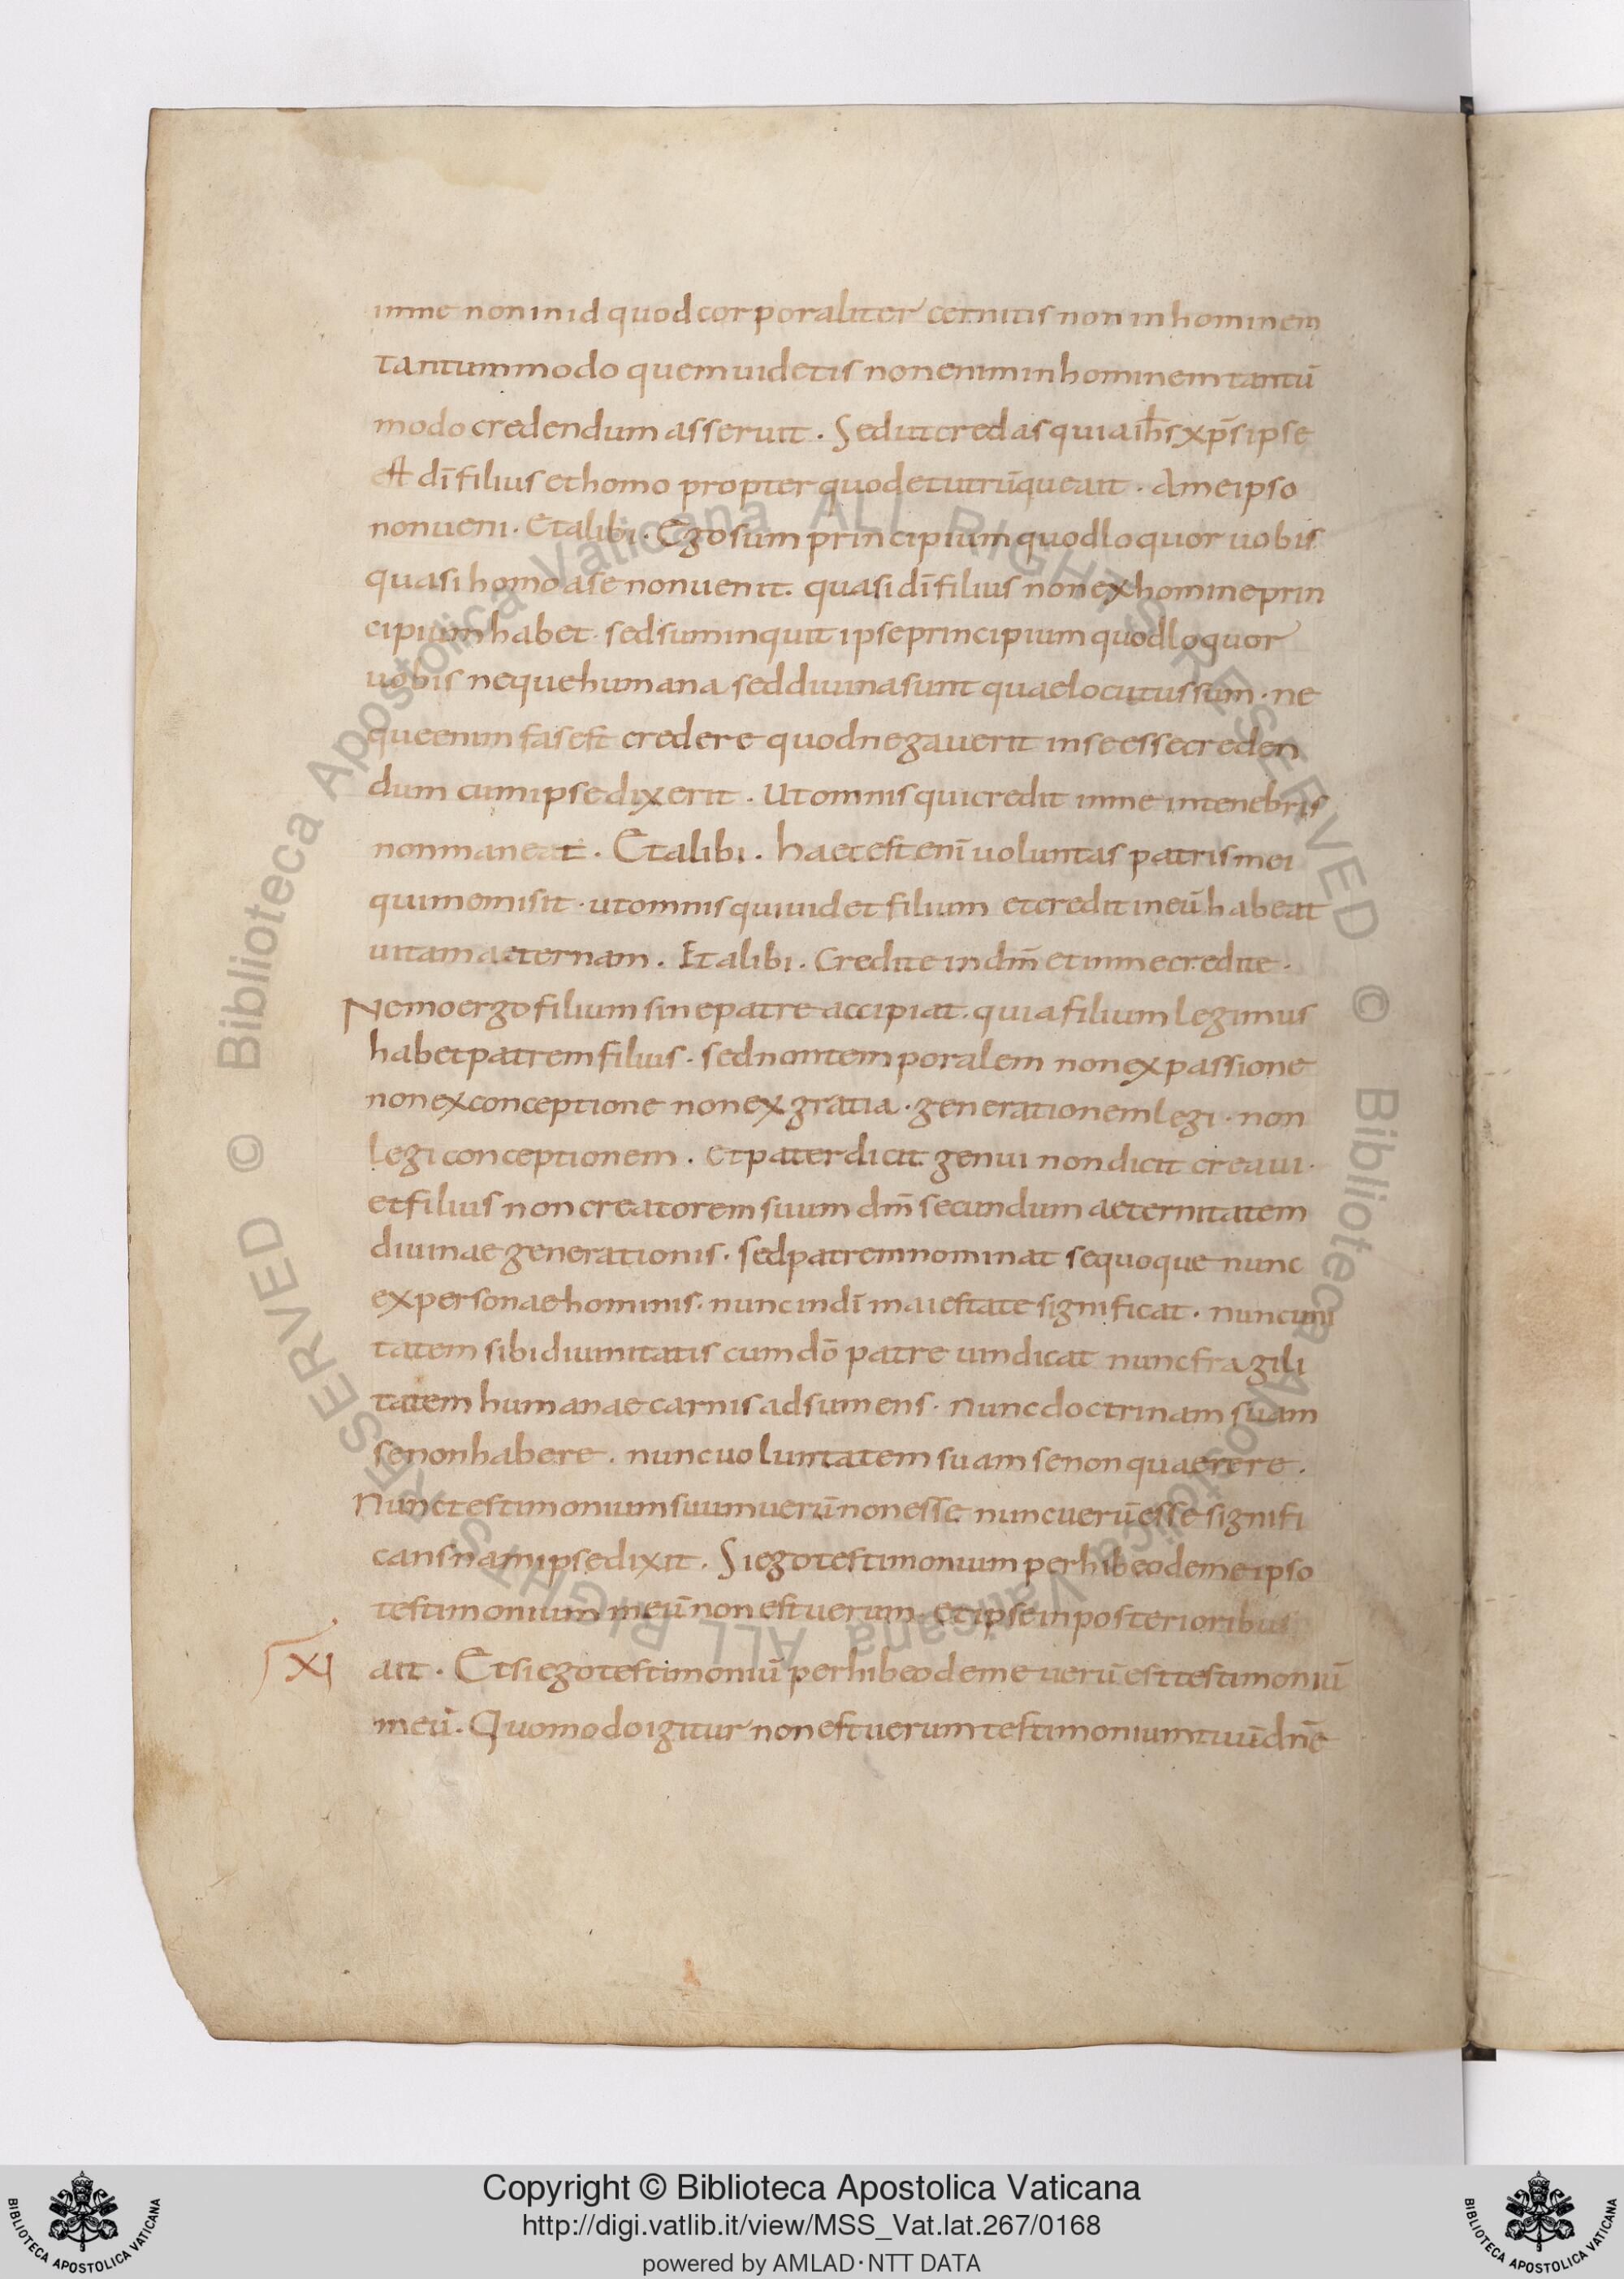 inme non in id quod corporaliter cernitis non in hominem
tantummodo quem uidetis non enim in hominem tantū
modo credendum asseruit . Sed ut credas quia ih̅s xp̅s ipse
est dī filius et homo propter quod et utrūque ait . A me ipso
non ueni . Et alibi . Ego sum principium quod loquor uobis
quasi homo a se non uenit . quasi dī filius non ex homine prin
cipium habet . sed sum inquit ipse principium quod loquor
uobis neque humana sed diuina sunt quae locutus sum . ne
que enim fas est credere quod negauerit in se esse creden
dum cum ipse dixerit . Ut omnis qui credit in me in tenebris
non maneat . Et alibi . haec est enī uoluntas patris mei
qui me misit . ut omnis qui uidet filium et credit in eū habeat
uitam aeternam . Et alibi . Credite in dm̅ et in me credite .
Nemo ergo filium sine patre accipiat . quia filium legimus
habet patrem filius . sed non temporalem non ex passione
non ex conceptione non ex gratia . generationem legi . non
legi conceptionem . et pater dicit genui non dicit creaui .
et filius non creatorem suum dm̅ secundum aeternitatem
diuinae generationis . sed patrem nominat se quoque nunc
ex personae hominis . nunc in dī maiestate significat . nunc uni
tatem sibi diuinitatis cum dō patre uindicat nunc fragili
tatem humanae carnis adsumens . nunc doctrinam suam
se non habere . nunc uoluntatem suam se non quaerere .
Nunc testimonium suum uerū non esse nunc uerū esse signifi
cans nam ipse dixit . Si ego testimonium perhibeo de me ipso
testimonium meū non est uerum . et ipse in posterioribus
XI ait . Et si ego testimoniū perhibeo de me uerū est testimoniū
meū . Quomodo igitur non est uerum testimonium tuū dn̅e
© Biblioteca Apostolica Vaticana ALL RIGHTS RESERVED © Biblioteca Apostolica Vaticana ALL RIGHTS RESERVED
BIBLIOTECA APOSTOLICA VATICANA
Copyright © Biblioteca Apostolica Vaticana
http://digi.vatlib.it/view/MSS_Vat.lat.267/0168
powered by AMLAD·NTT DATA
BIBLIOTECA APOSTOLICA VATICANA